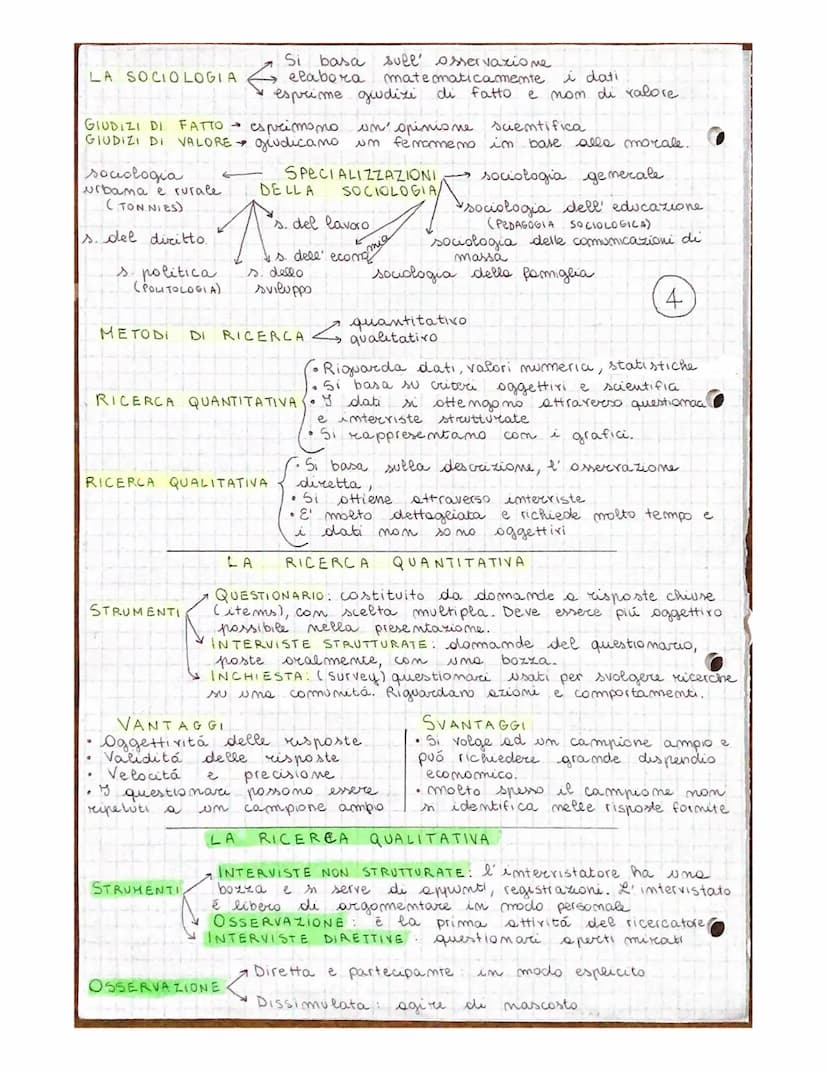 Si basa sull' osservazione
LA SOCIOLOGIA → elabora matematicamente i dati
esprime giudizi di fatto e non di valore
GIUDIZI DI FATTO → esprimono un' opinione scientifica
GIUDIZI DI VALORE → giudicano un fenomeno in base alla morale.
sociologia ← SPECIALIZZAZIONI → sociologia generale
urbana e rurale DELLA SOCIOLOGIA
(TONNIES) sociologia dell' educazione
s. del lavoro (PEDAGOGIA SOCIOLOGICA)
s. del diritto sociologia delle comunicazioni di
s. dell' economia massa
s. politica s. dello sociologia della famiglia
(POLITOLOGIA) sviluppo
4
quantitativo
METODI DI RICERCA → qualitativo
• Riguarda dati, valori numerici, statistiche
• Si basa su criteri oggettivi e scientifici
RICERCA QUANTITATIVA • I dati si ottengono attraverso
e interviste strutturate
• Si rappresentano con i grafici.
• Si basa sulla descrizione, l' osservazione
RICERCA QUALITATIVA diretta,
• Si ottiene attraverso interviste
• E' molto dettagliata e richiede molto tempo e
i dati non sono oggettivi
LA RICERCA QUANTITATIVA
QUESTIONARIO: costituito da domande a risposte chiuse
STRUMENTI (items), con scelta multipla. Deve essere piú oggettivo
possibile nella presentazione.
INTERVISTE STRUTTURATE: domande del questionario,
poste oralmente, con una bozza.
INCHIESTA: (survey) questionari usati per svolgere ricerche
su una comunitá. Riguardano azioni e comportamenti.
VANTAGGI
• Oggettivitá delle risposte
• Validitá delle risposte
• Velocitá e precisione
• I questionari possono essere
ripetuti a un campione ampio
SVANTAGGI
• Si volge ad un campione ampio e
puó richiedere grande dispendio
economico.
• molto spesso il campione non
si identifica nelle risposte fornite
LA RICERCA QUALITATIVA
INTERVISTE NON STRUTTURATE: l' intervistatore ha una
STRUMENTI bozza e si serve di appunti, registrazioni. L' intervistato
é libero di argomentare in modo personale
OSSERVAZIONE: é la prima attivitá del ricercatore
INTERVISTE DIRETTIVE: questionari aperti mirati
Diretta e partecipante: in modo esplicito
OSSERVAZIONE
Dissimulata: agire di nascosto